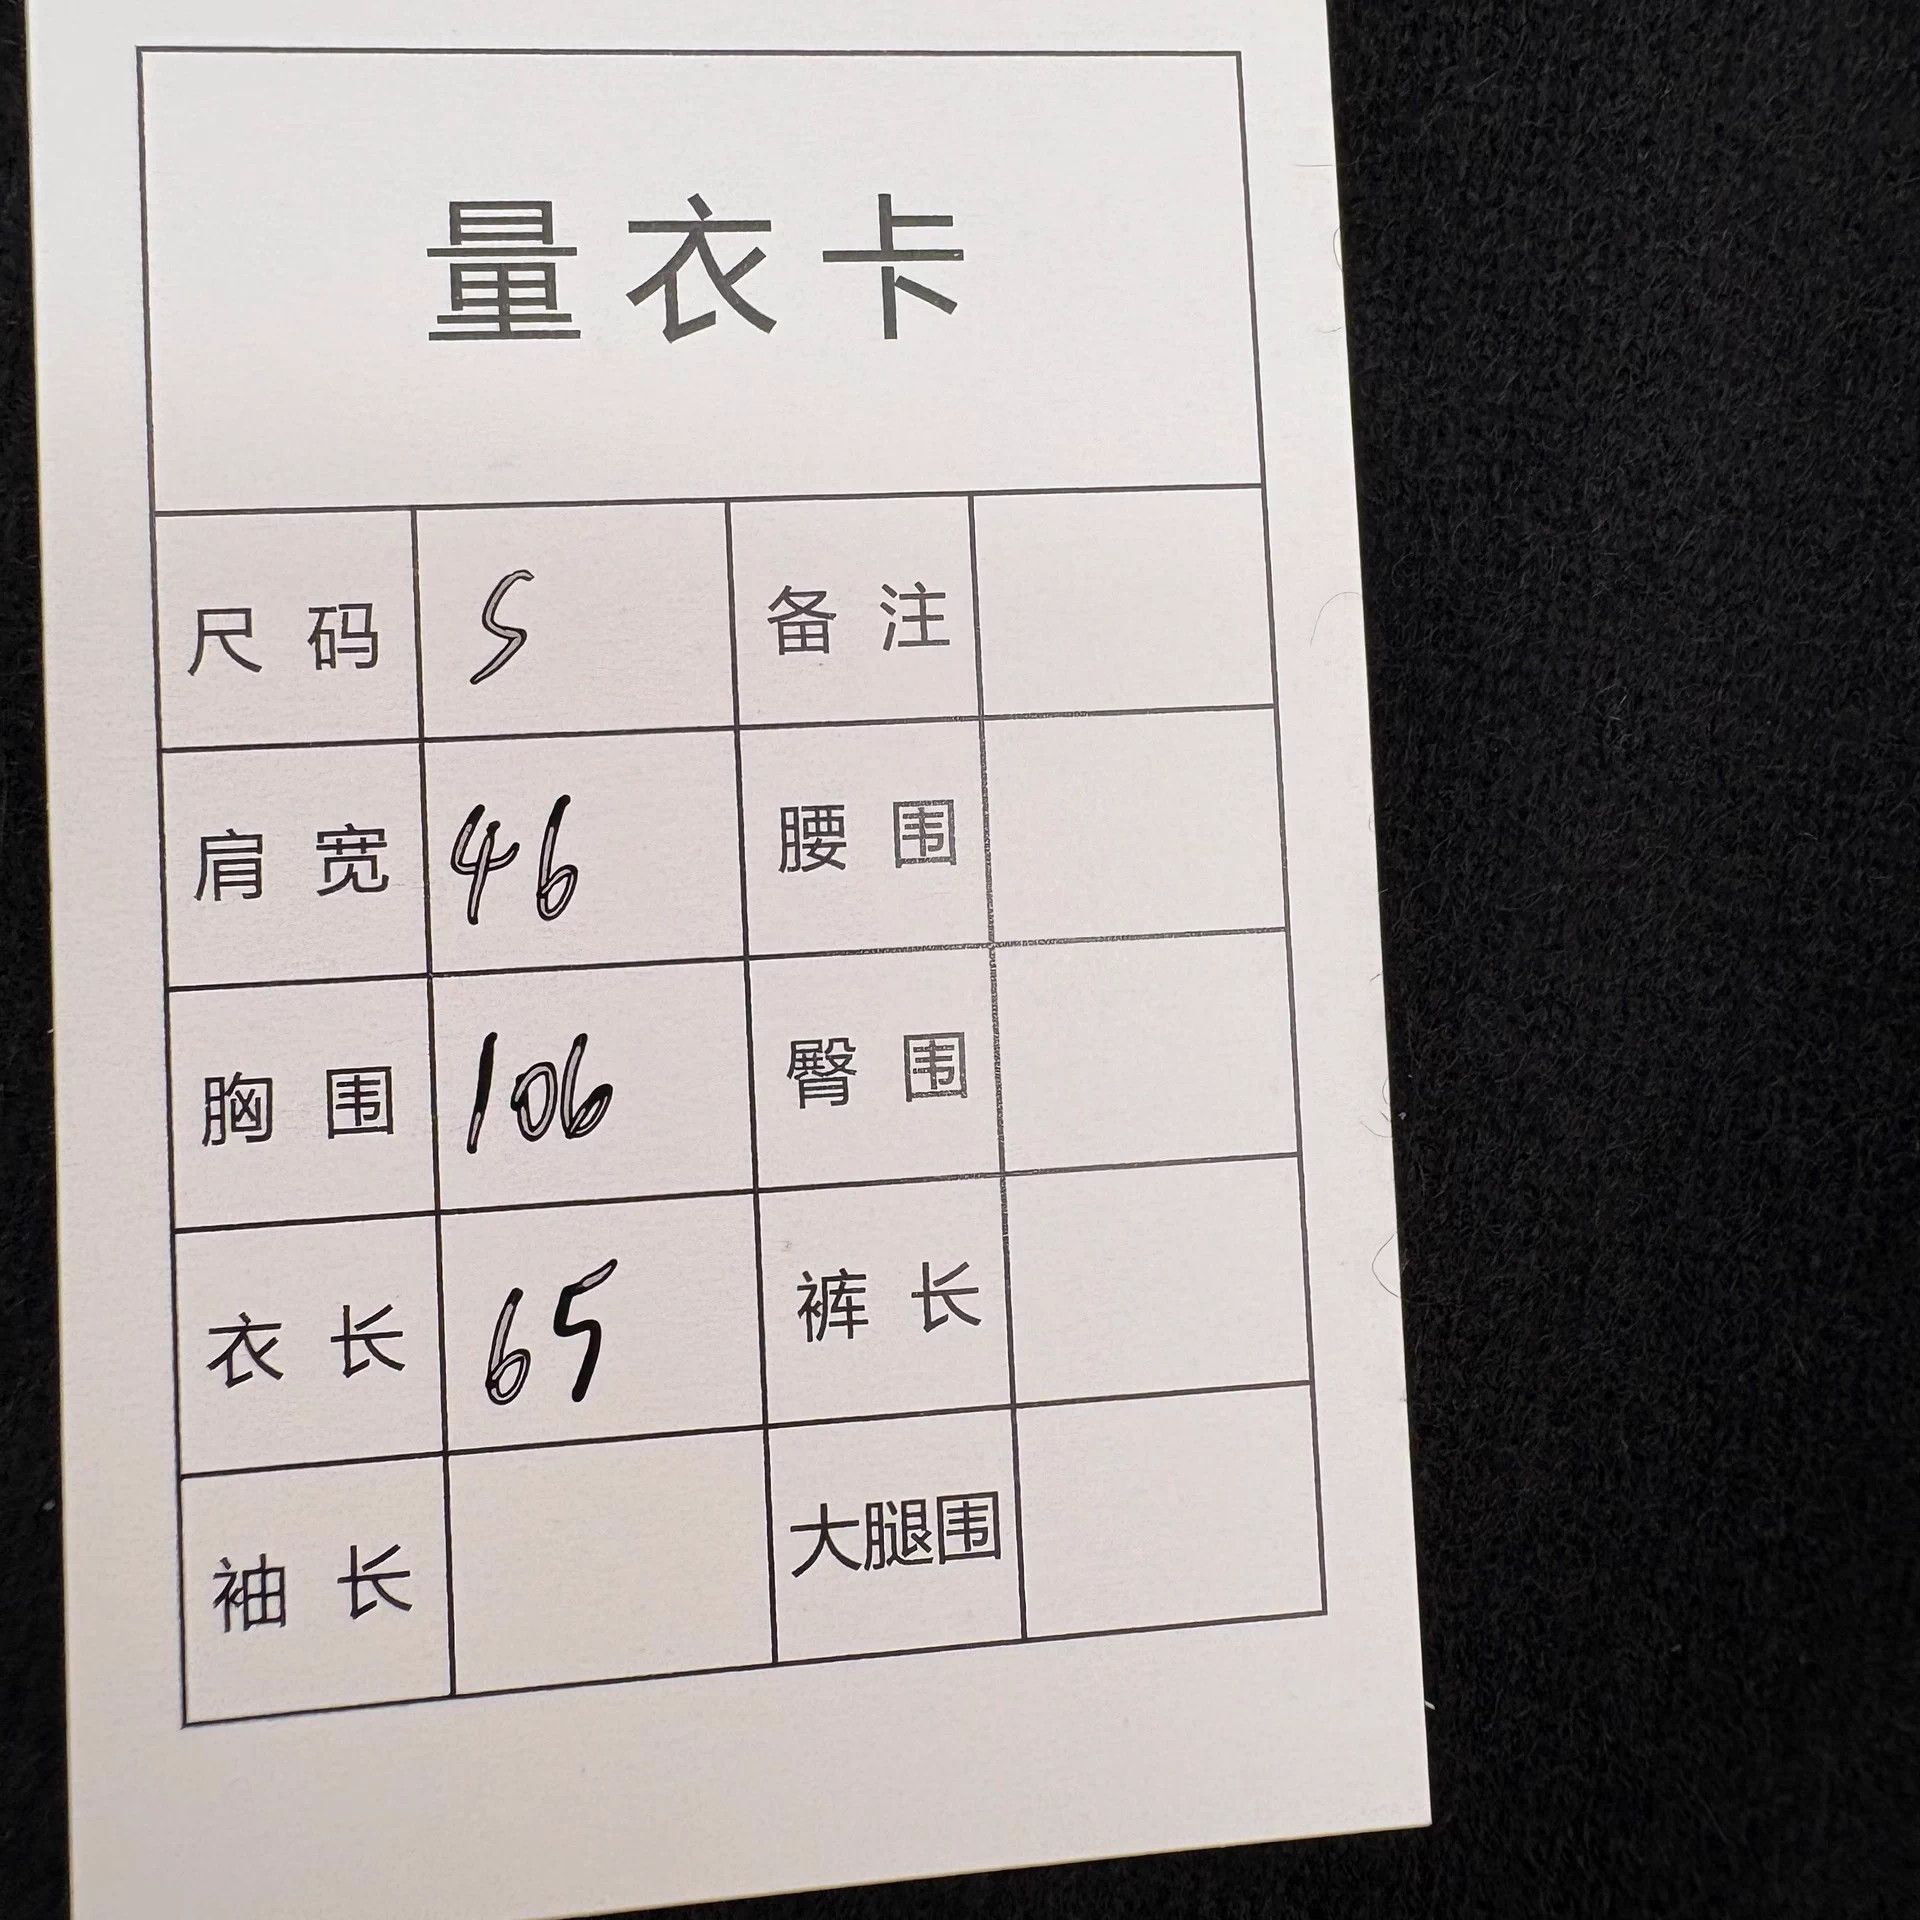 量衣卡
尺码 S 备注
肩宽 46 腰围
胸围 106 臀围
衣长 65 裤长
袖长 大腿围